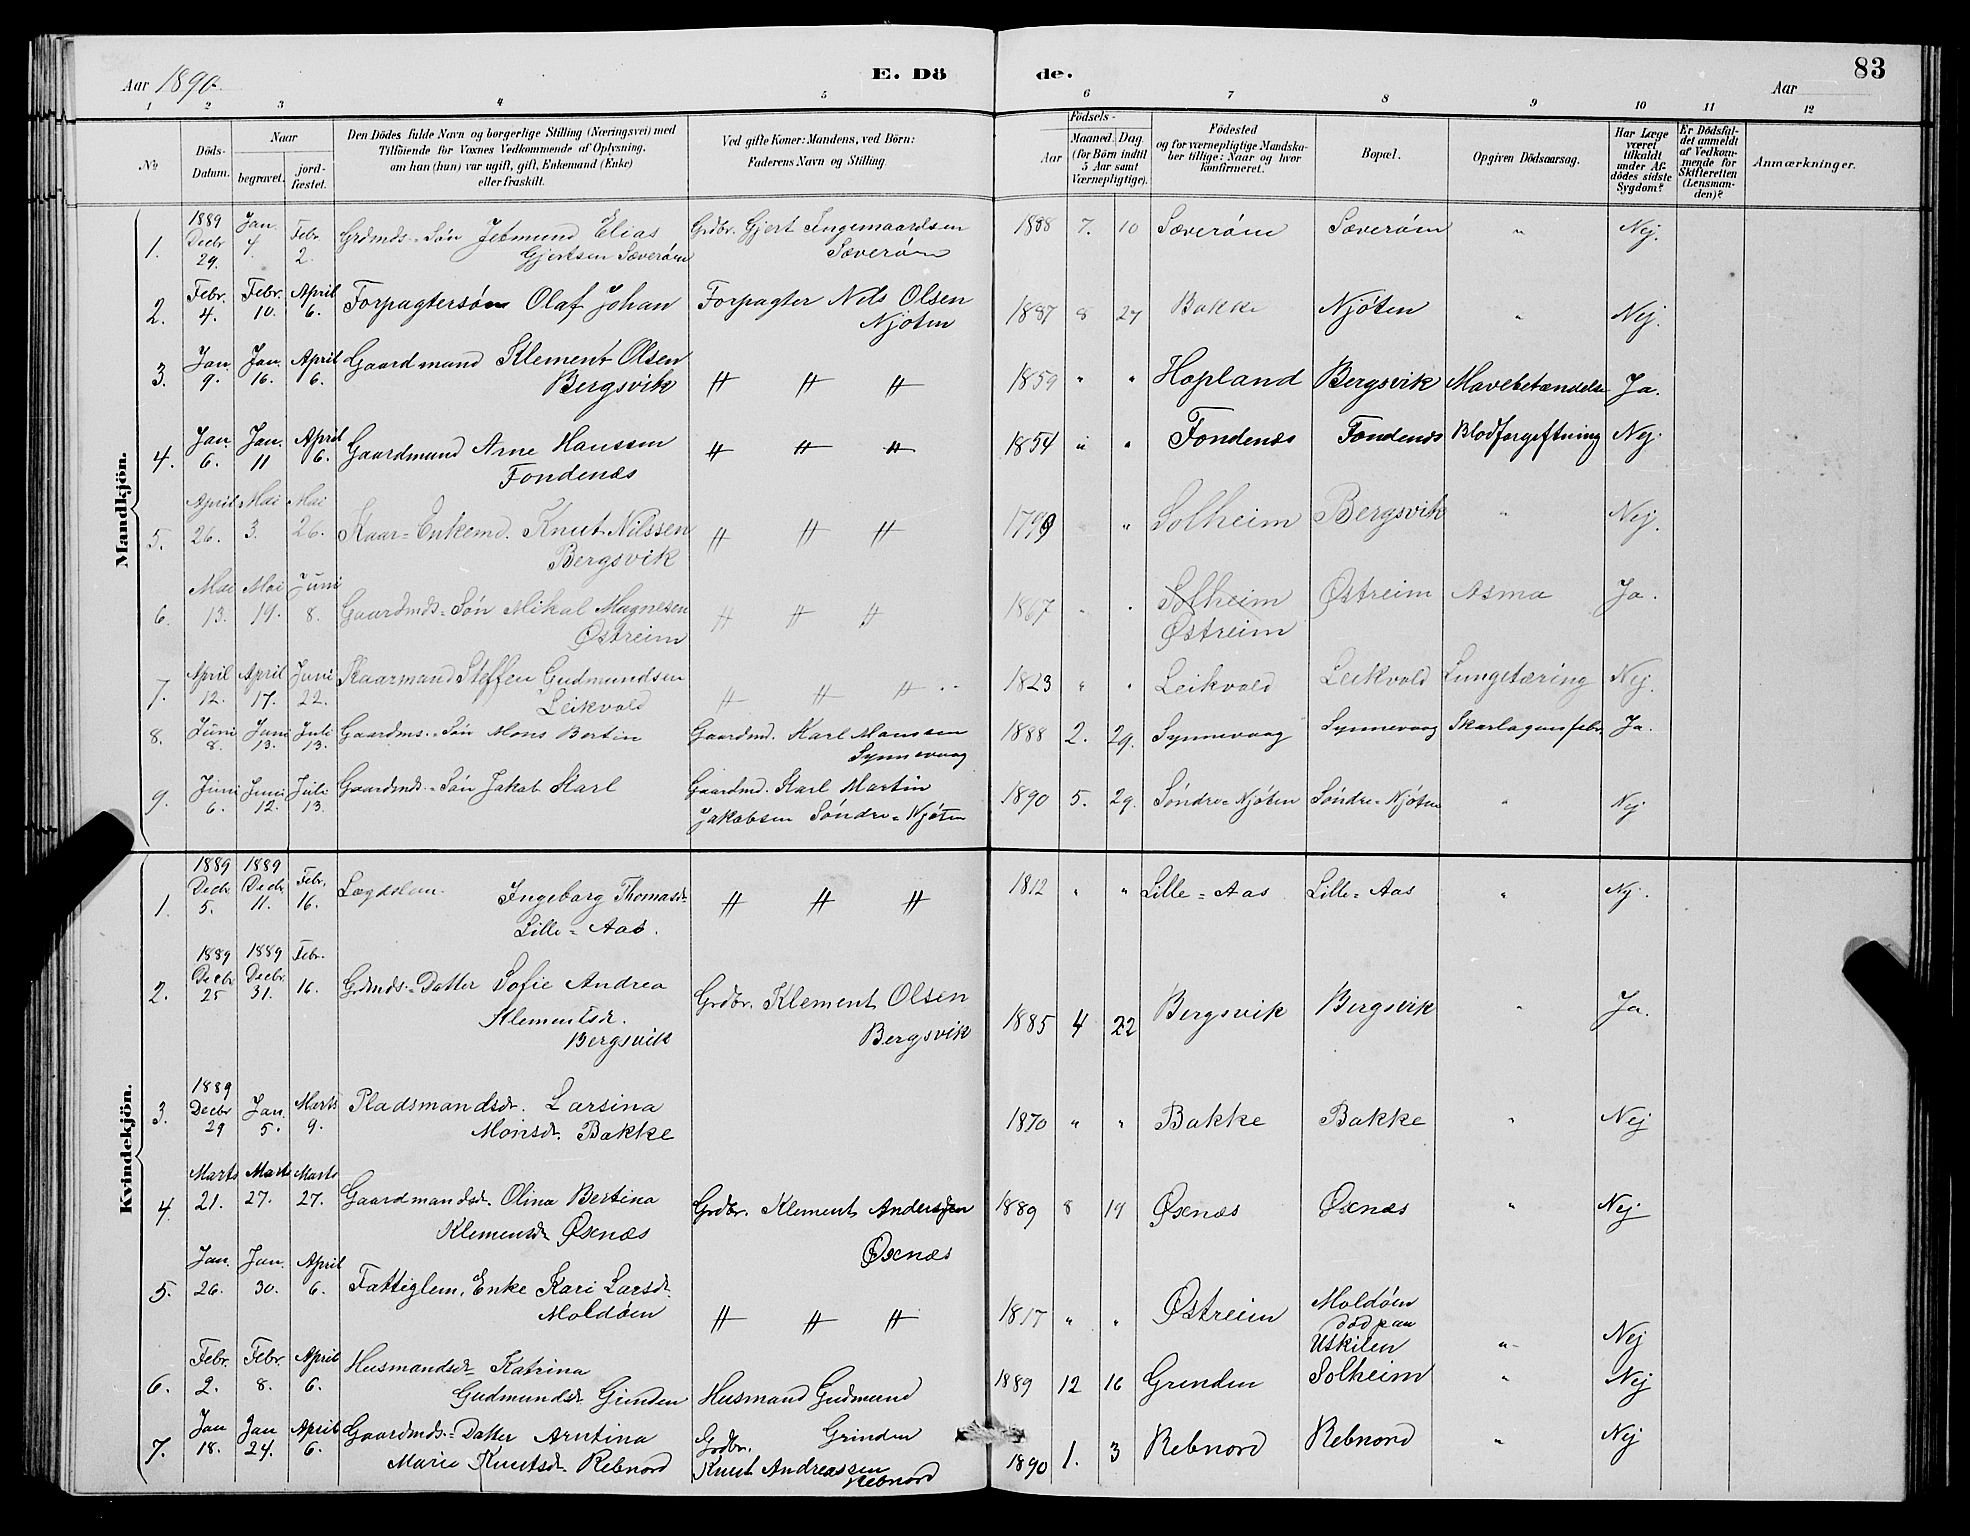 Aar 1890. E. Dö de. Aar 83
1 2 3 4 5 6 7 8 9 10 11 12
No Döds-Datum. Naar begravet. jordfæstet. Den Dödes fulde Navn og borgerlige Stilling (Næringsvei) med Tilföiende for Voxnes Vedkommende af Oplysning, om han (hun) var ugift, gift, Enkemand (Enke) eller fraskilt. Ved gifte Koner: Mandens, ved Börn: Faderens Navn og Stilling. Födsels- Aar Maaned. Dag (for Börn indtil 5 Aar samt Værnepligtige). Födested og for værnepligtige Mandskaber tillige: Naar og hvor konfirmeret. Bopæl. Opgiven Dödsaarsag. Har Læge været tilkaldt under Afdödes sidste Sygdom? Er Dödsfaldet anmeldt af Vedkommende for Skifteretten (Lensmanden)? Anmærkninger.
Mandkjön.
1. 1889 Decbr 29. Jan. 4. Febr. 2. Grdmds-Søn Jetmund Elias Grdbr. Gjert Ingemaardsen 1888 7. 10 Sæverøm Sæverøm " Nej.
Gjertsen Sæverøm Sæverøm
2. Febr. 4. Febr. 10. April 6. Forpagtersøn Olaf Johan Forpagter Nils Olsen 1887 8 27 Bakke Njøten " Nej.
Njøten
3. Jan. 9. Jan. 16. April 6. Gaardmand Klement Olsen 1859 " " Hopland Bergsvik Mavebetændelse Ja.
Bergsvik # # #
4. Jan. 6. Jan. 11 April 6. Gaardmand Arne Hanssen # # # 1854 " " Fondenæs Fondenæs Blodforgiftning Nej
Fondenæs
5. April 26. Mai 3. Mai 26. Kaar-Enkemd. Knut Nilssen # # # 1799 " Solheim Bergsvik " Nej.
Bergsvik
6. Mai 13. Mai 19. Juni 8. Gaardmds-Søn Mikal Magnesen # # # 1867 " " Solheim Østreim Asma Ja.
Østreim Østreim
7. April 12. April 17. Juni 22. Kaarmand Steffen Gudmundsen # # # 1823 " " Leikvold Leikvold Lungetæring Nej.
Leikvold
8. Juni 8. Juni 13. Juli 13. Gaardms.-Søn Mons Bertin Gaardmd. Karl Monssen 1888 2. 29. Synnevaag Synnevaag Skarlagensfebr. Ja.
Synnevaag
9. Juni 6. Juni 12. Juli 13. Gaardmds.-Søn Jakob Karl Gaardmd. Karl Martin 1890 5. 29. Søndre-Njøten Søndre-Njøten " Nej
Jakobsen Søndre-Njøten
Kvindekjön.
1. 1889 Decbr 5. 1889 Decbr. 11. Febr. 16. Lægdslem. Ingeborg Thomasdr. # # # 1812 " " Lille-Aas Lille-Aas " Nej.
Lille-Aas.
2. 1889 Decbr 25 1889 Decbr. 31. Febr. 16. Grdmds.-Datter Sofie Andrea Grdbr. Klement Olsen 1885 4 22 Bergsvik Bergsvik " Ja.
Klementsdr.
Bergsvik Bergsvik
3. 1889 Decbr 29 Jan. 5. Marts 9. Pladsmandsdr. Larsina 1870 " " Bakke Bakke " Nej
Monsdr. Bakke
4. Marts 21. Marts 27. Marts 27. Gaardmandsdr. Olina Bertina Grdbr. Klement Anderssen 1889 8 19 Øxnæs Øxnæs " Nej
Klemensdr. Øxnæs Øxnæs
5. Jan. 26. Jan. 30. April 6. Fattiglem, Enke Kari Larsdr. # # # 1817 " " Østreim Moldøen
Moldøen død paa
Utskilen " Nej
6. Febr. 2. Febr. 8. April 6. Husmandsdr Katrina
Gudmundsdr Grinden Husmand Gudmund 1889 12 16 Grenden Solheim " Nej
Grinden
7. Jan 18. Jan 24. April 6. Gaardmds.-Datter Arntina Grdbr. 1890 1. 3 Rebnord Rebnord " Nej
Marie Knutsdr. Rebnord Knut Andreassen
Rebnord